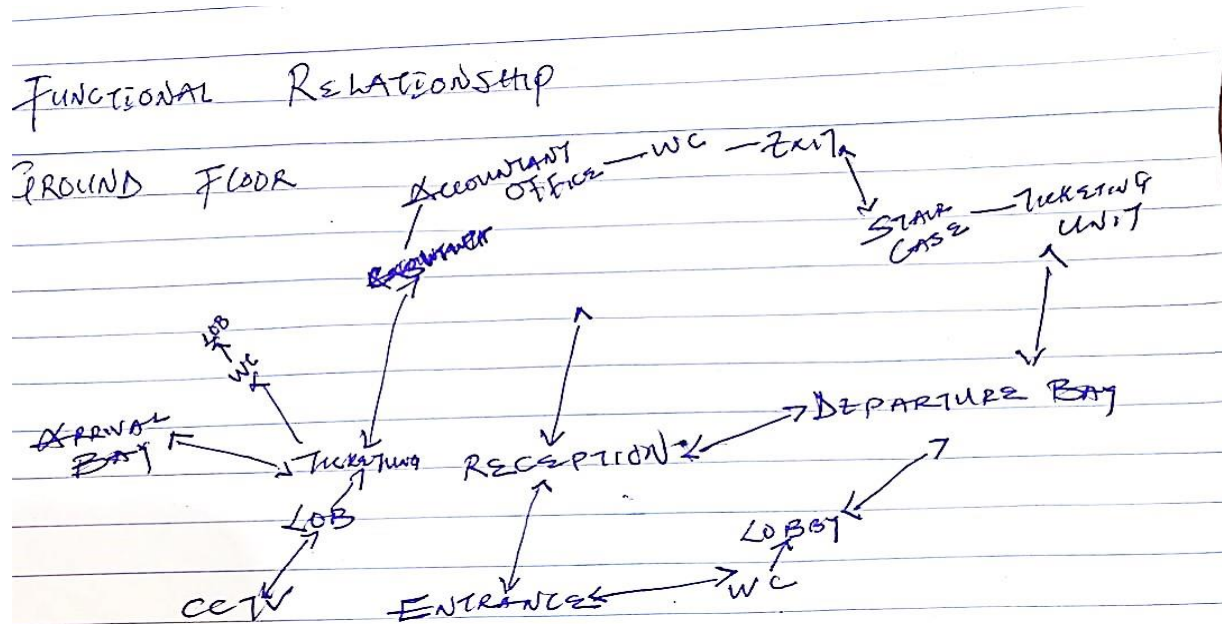 FUNCTIONAL RELATIONSHIP
GROUND FLOOR
ACCOUNTANT OFFICE — WC — EXIT
STAIR CASE — TICKETING UNIT
LOB
WC
ARRIVAL BAY
TICKETING
RECEPTION
DEPARTURE BAY
LOB
LOBBY
CCTV
ENTRANCE
WC